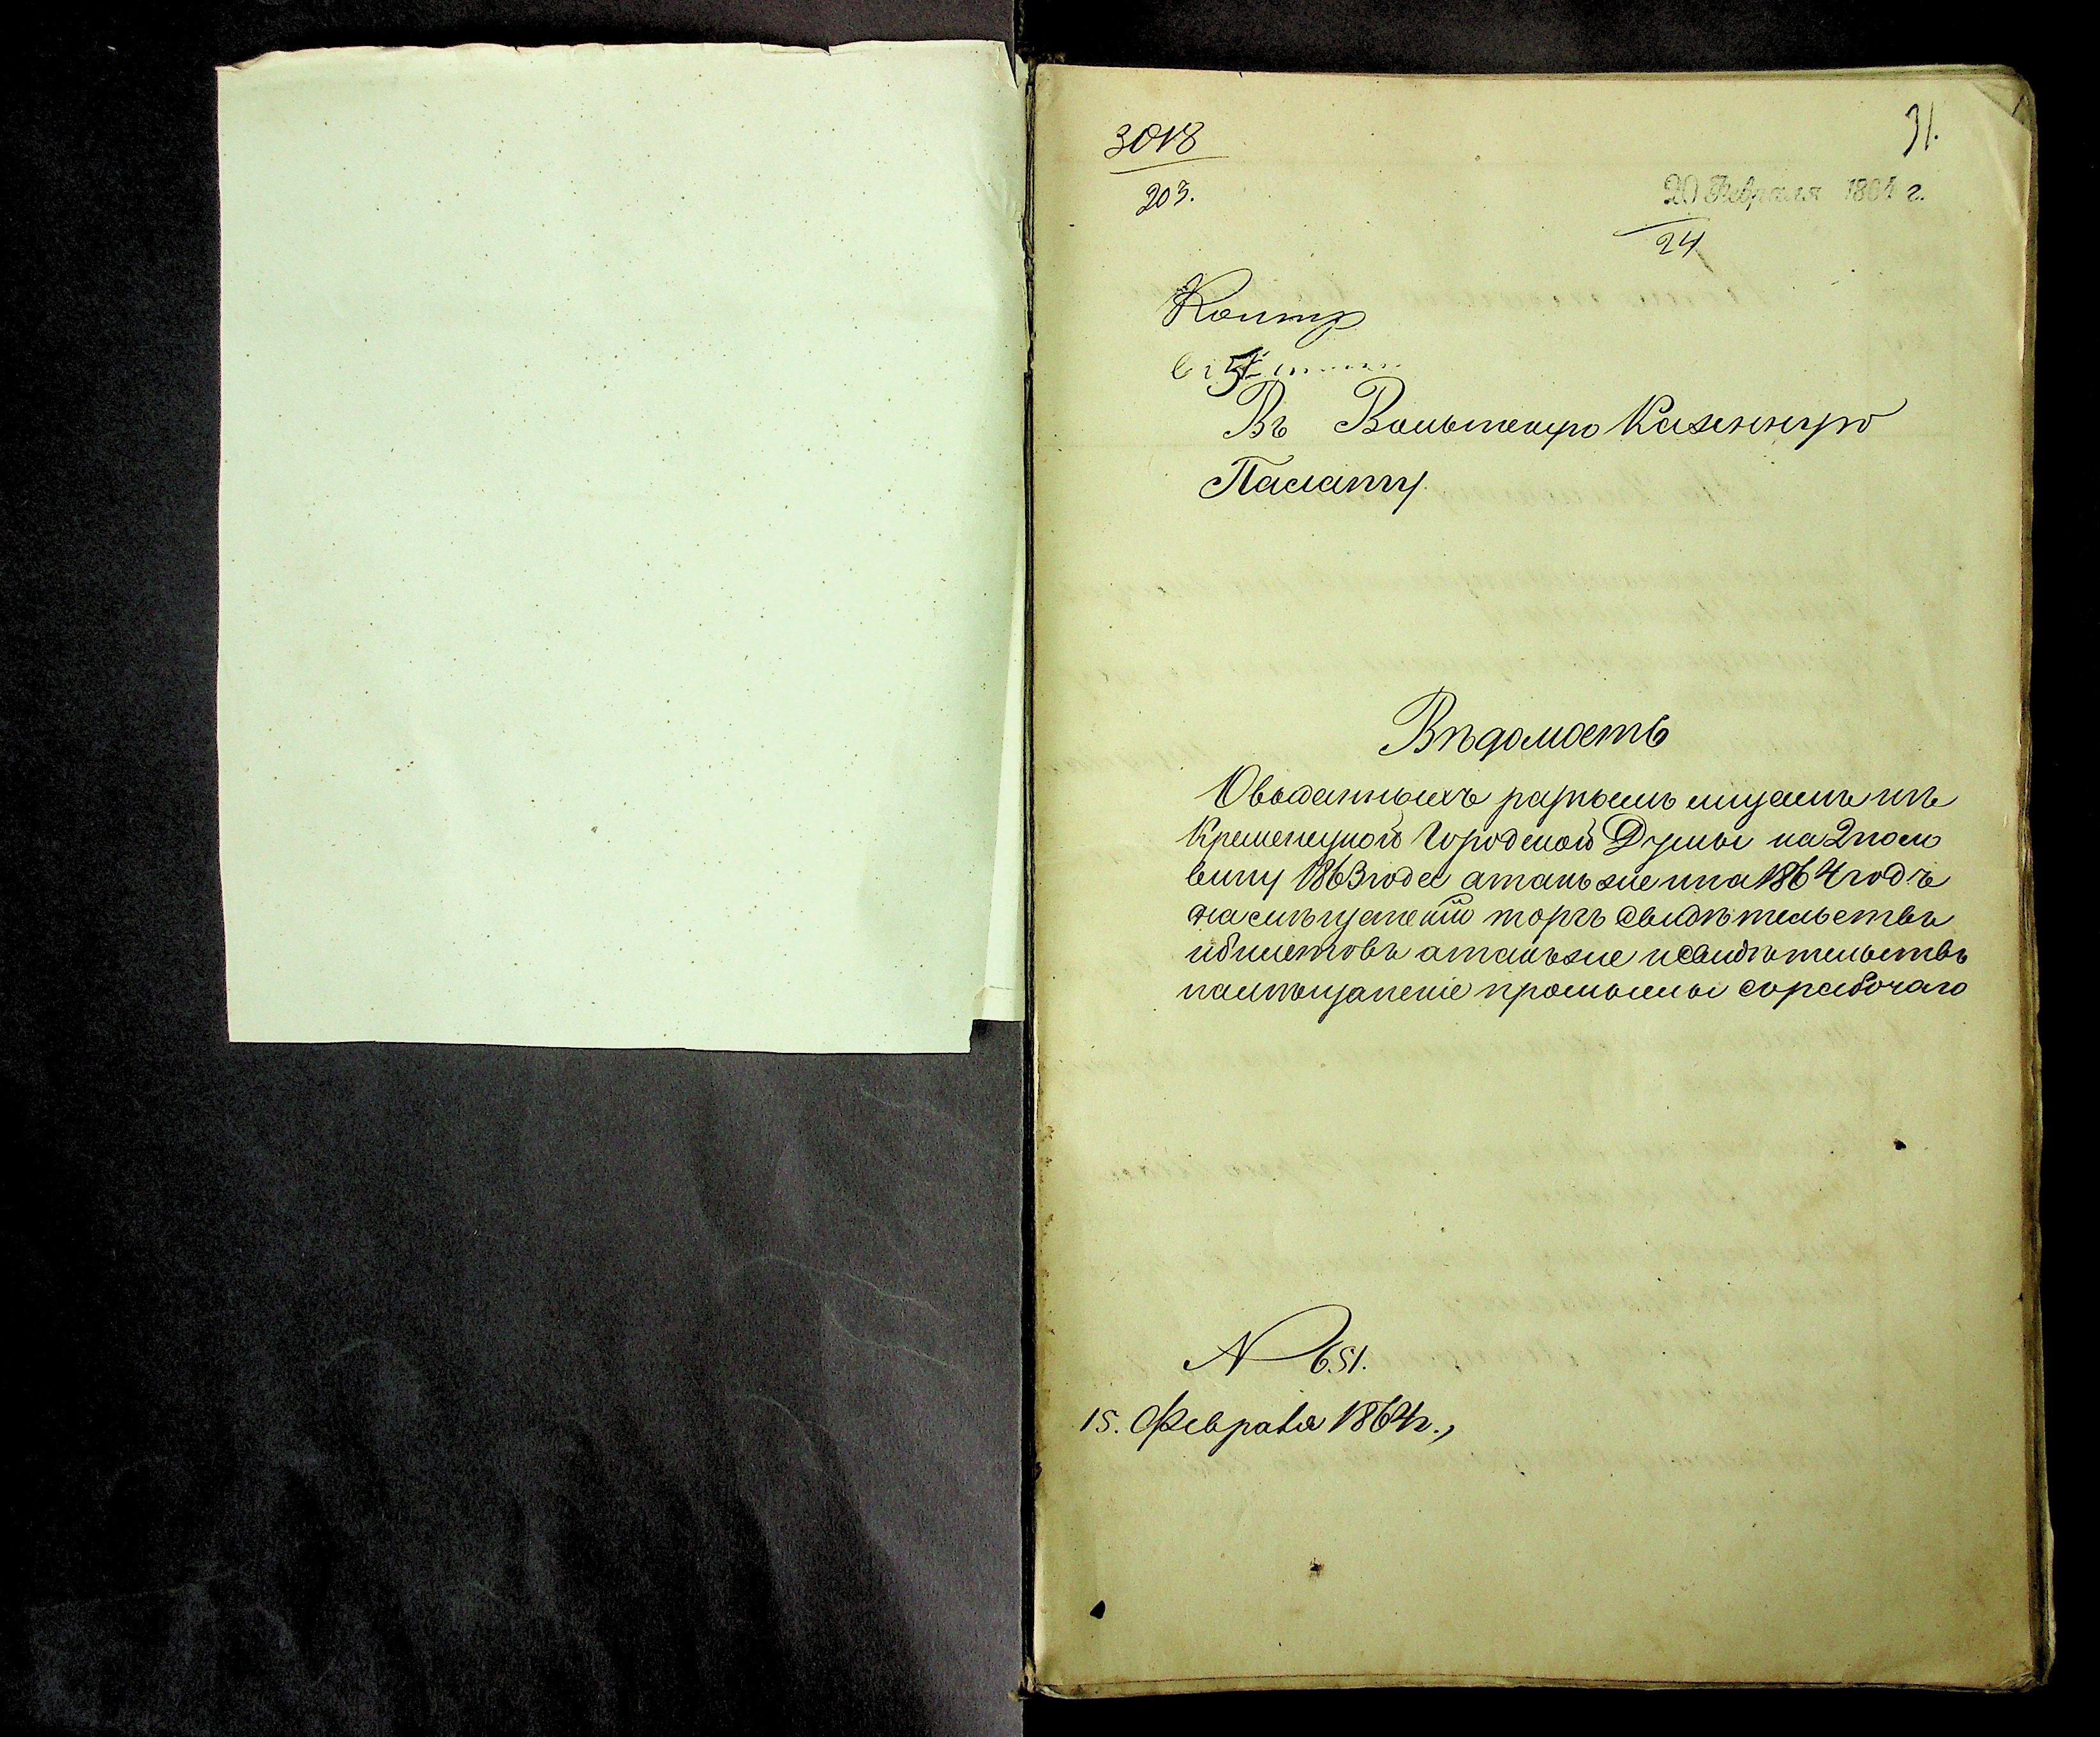 3018
203.
31.
20 Февраля 1864 г.
24
Контр
5
Въ Волынскую Казенную
Палату
Вѣдомость
О выданныхъ разнымъ лицамъ изъ
Кременецкой Городской Думы на 2 поло
вину 1863 года а также и на 1864 годъ
торгъ свидѣтельствъ
и билетовъ а также и свидѣтельствъ
на мѣщанскіе промыслы
N 651.
15. Февраля 1864 г.,